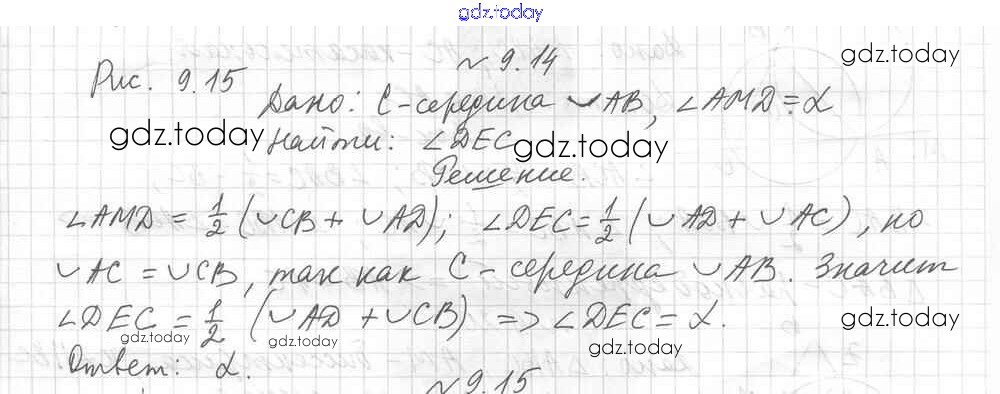 gdz.today
№ 9.14
gdz.today
Рис. 9.15
Дано: С-середина ◡AB, ∠AMD = α
gdz.today
Найти: ∠DEC
gdz.today
Решение.
∠AMD = 1/2 (◡CB + ◡AD); ∠DEC = 1/2 (◡AD + ◡AC), но
◡AC = ◡CB, так как С-середина ◡AB. Значит
∠DEC = 1/2 (◡AD + ◡CB) => ∠DEC = α.
gdz.today
gdz.today
gdz.today
gdz.today
Ответ: α.
№ 9.15